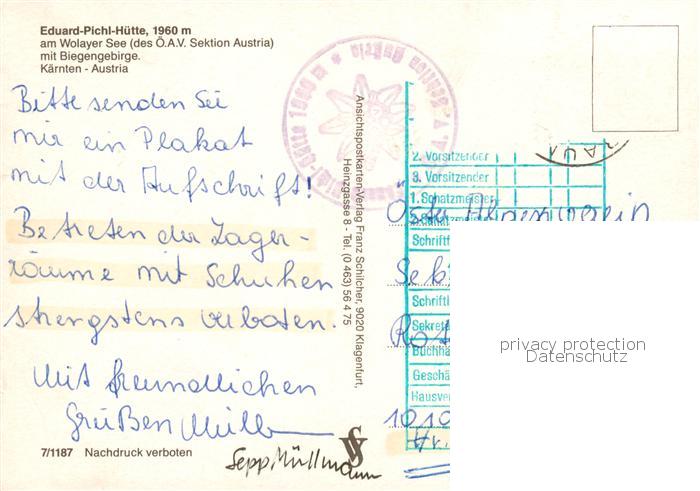 Eduard-Pichl-Hütte, 1960 m
am Wolayer See (des Ö.A.V. Sektion Austria)
mit Biegengebirge.
Kärnten - Austria
Bitte senden Sei
mir ein Plakat
mit der Aufschrift!
Betreten der Lager-
räume mit Schuhen
strengstens verboten.
Mit freundlichen
Grüßen Müll
Sepp Müllmann
7/1187 Nachdruck verboten
Ansichtspostkarten-Verlag Franz Schilcher, 9020 Klagenfurt,
Heinzgasse 8 - Tel. (0 463) 56 4 75
2. Vorsitzender
3. Vorsitzender
1. Schatzmeister
Östr. Alpenverein
Schriftf
Sek
Schriftl
Sekre
Buchha
Geschä
Hausver
1010
privacy protection
Datenschutz